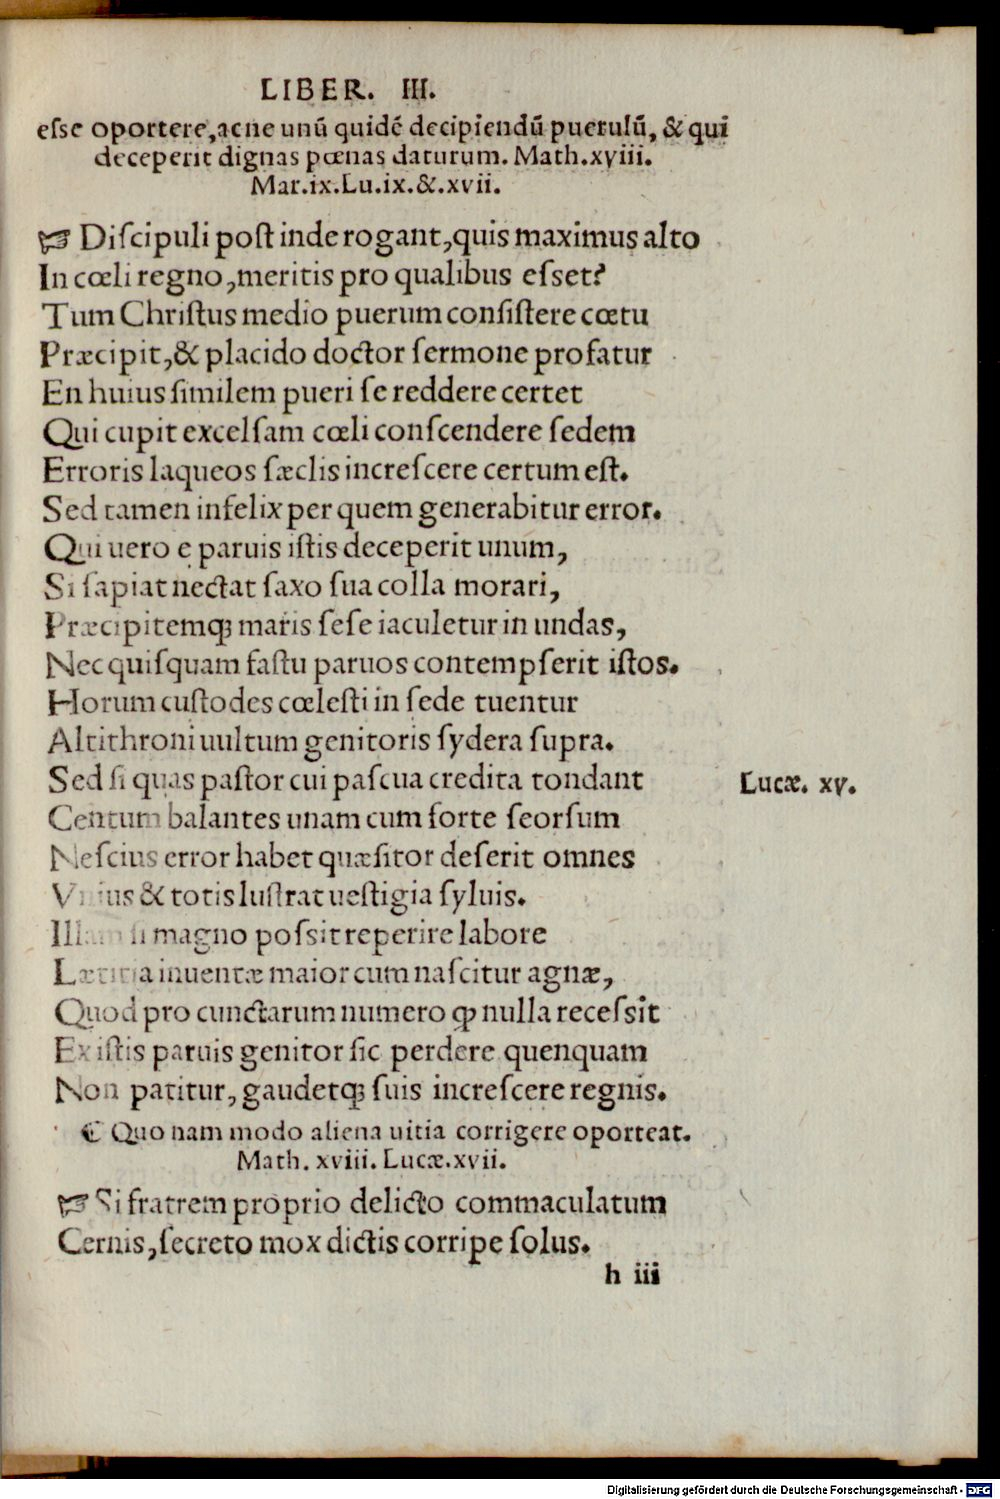 LIBER. III.
eſse oportere, ac ne unū quidē decipiendū puerulū, & qui
deceperit dignas pœnas daturum. Math. xviii.
Mar. ix. Lu. ix. &. xvii.
☞ Diſcipuli poſt inde rogant, quis maximus alto
In cœli regno, meritis pro qualibus eſset?
Tum Chriſtus medio puerum conſiſtere cœtu
Præcipit, & placido doctor ſermone profatur
En huius ſimilem pueri ſe reddere certet
Qui cupit excelſam cœli conſcendere ſedem
Erroris laqueos ſæclis increſcere certum eſt.
Sed tamen infelix per quem generabitur error.
Qui uero e paruis iſtis deceperit unum,
Si ſapiat nectat ſaxo ſua colla morari,
Præcipitemqꝫ maris ſeſe iaculetur in undas,
Nec quiſquam faſtu paruos contempſerit iſtos.
Horum cuſtodes cœleſti in ſede tuentur
Altithroni uultum genitoris ſydera ſupra.
Sed ſi quas paſtor cui paſcua credita tondant
Lucæ. xv.
Centum balantes unam cum forte ſeorſum
Neſcius error habet quæſitor deſerit omnes
Vnius & totis luſtrat ueſtigia ſyluis.
Illam ſi magno poſsit reperire labore
Lætitia inuentæ maior cum naſcitur agnæ,
Quod pro cunctarum numero ꝙ nulla receſsit
Ex iſtis paruis genitor ſic perdere quenquam
Non patitur, gaudetqꝫ ſuis increſcere regnis.
⸿ Quo nam modo aliena uitia corrigere oporteat.
Math. xviii. Lucæ. xvii.
☞ Si fratrem proprio delicto commaculatum
Cernis, ſecreto mox dictis corripe ſolus.
h iii
Digitalisierung gefördert durch die Deutsche Forschungsgemeinschaft - DFG